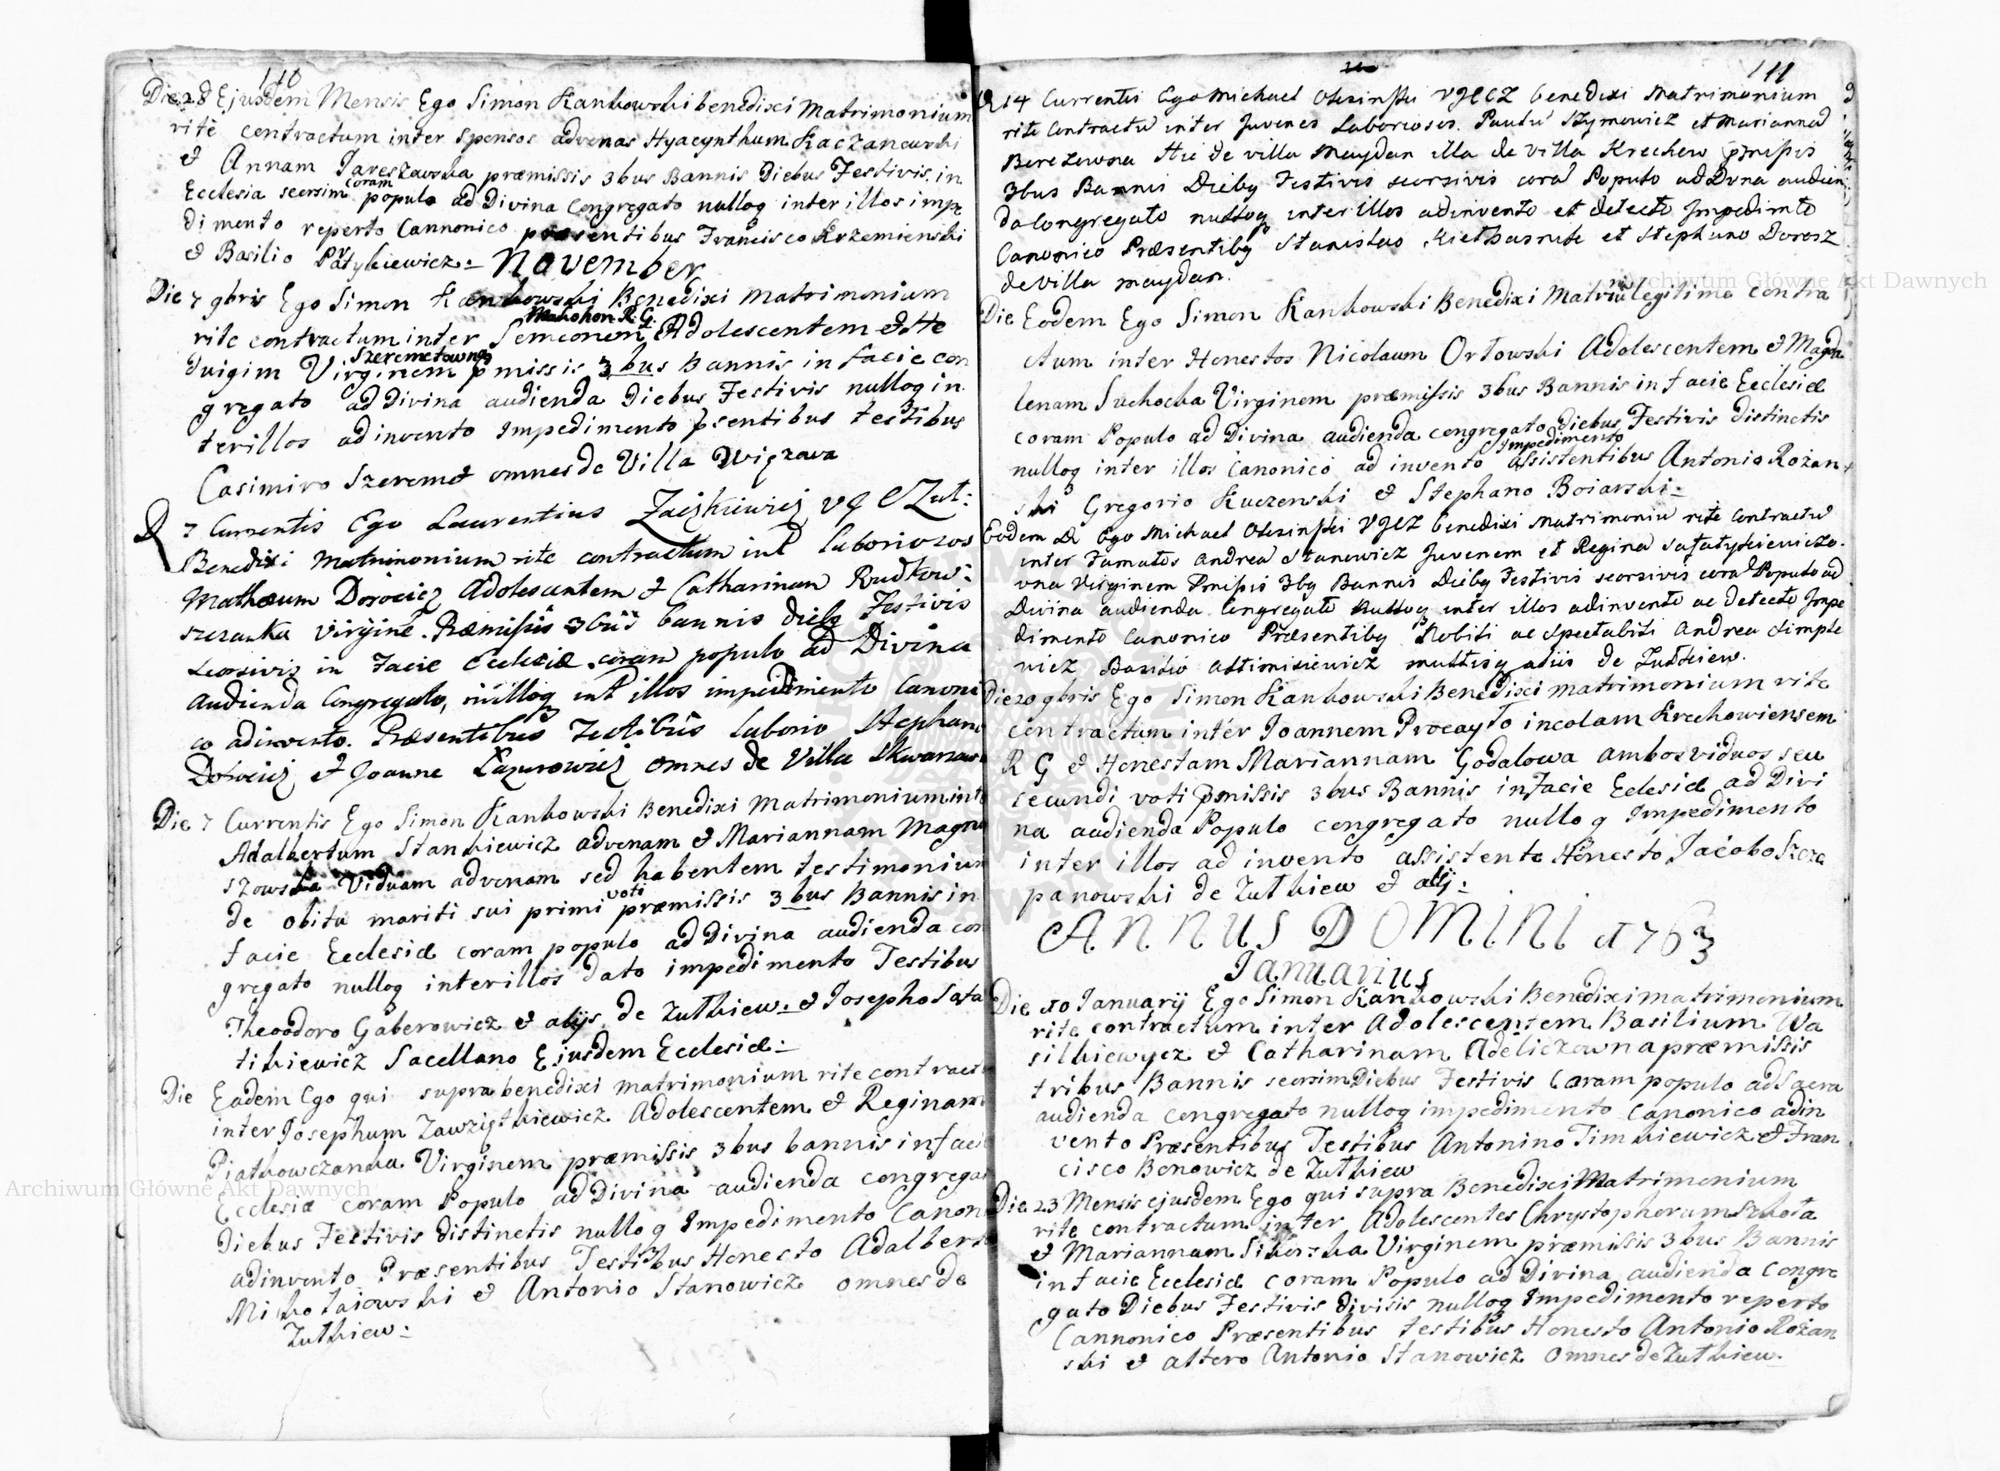 110
Die 28 Ejusdem Mensis Ego Simon Kankowski benedixi Matrimonium
rite contractum inter sponsos advenas Hyacynthum Kaczanowski
& Annam Jareszawska præmissis 3bus Bannis Diebus Festivis in
Ecclesia seorsim coram populo ad Divina Congregato nulloq inter illos impe
dimento reperto Cannonico præsentibus Francisco Krzemienski
& Basilio Patykiewicz:
November
Die 7 9bris Ego Simon Kankowski Benedixi Matrimonium
rite contractum inter Semionem Makohon R. G. Adolescentem & He
duigim Szeremetowna Virginem pmissis 3bus Bannis in facie con
gregato ad Divina audienda Diebus Festivis nulloq in
ter illos ad invento Impedimento psentibus testibus
Casimiro Szeremet omnes de Villa Wiązowa
D 7 Currentis Ego Laurentius VG C Zuł:
Benedixi Matrimonium rite contractum int laboriosos
Mathæum Dorocicz Adolescentem & Catharinam Rudkow:
szczanka virgine. Præmissis 3bus bannis dieb Festivis
seorsivis in Facie Ecclesiæ coram populo ad Divina
audienda Congregato, nulloq int illos impedimento Canoni
co adinvento. Præsentibus Testibus laborio Stephano
Dorocicz & Joanne Łazurowicz omnes de Villa Skwarzaw
Die 7 Currentis Ego Simon Kankowski Benedixi Matrimonium inte
Adalbertum Stankiewicz advenam & Mariannam Magnu
szowska Viduam advenam sed habentem testimonium
de obitu mariti sui primi voti præmissis 3bus Bannis in
facie Ecclesiæ coram populo ad Divina audienda con
gregato nulloq inter illos dato impedimento Testibus
Theodoro Gaberowicz & alijs de Zułkiew & Josepho Sała
tikiewicz Sacellano Ejusdem Ecclesiæ:
Die Eadem Ego qui supra benedixi matrimonium rite contract
inter Josephum Zawziętkiewicz Adolescentem & Reginam
Piatkowczanka Virginem præmissis 3bus bannis in facie
Ecclesiæ coram Populo ad Divina audienda congrega
Diebus Festivis distinctis nulloq Impedimento Canoni
adinvento Præsentibus Testibus Honesto Adalberto
Mikołaiowski & Antonio Stanowicz omnes de
Zułkiew:
111
D 14 Currentis Ego Michael Olesinski VGCZ benedixi Matrimonium
rite Contractu inter Juvenes Laboriosos. Paulu Szymowicz et Marianna
Berezowna Hic de villa Maydan illa de villa Krechow pmissis
3bus Bannis Dieby Festivis seorsivis cora Populo ad Dvna audien
da Congregato nulloq inter illos adinvento et detecto Impedimto
Canonico Præsentiby Stanislao et Stephano Dorosz
de villa maydan.
Die Eodem Ego Simon Kankowski Benedixi Matrium legitime contra
ctum inter Honestos Nicolaum Orłowski Adolescentem & Magda
lenam Suchocka Virginem præmissis 3bus Bannis in facie Ecclesiæ
coram Populo ad Divina audienda congregato diebus Festivis distinctis
nulloq inter illos canonico ad invento Impedimento assistentibus Antonio Rożan
ski Gregorio Kuczewski & Stephano Boiarski:
Eodem D Ego Michael Olesinski VGCZ benedixi Matrimoniu rite Contractu
inter Famatos Andrea Stanowicz Juvenem et Regina Sałatyckiewiczo
wna Virginem Pmissis 3by Bannis Dieby Festivis seorsivis cora Populo ad
Divina audienda Congregato Nulloq inter illos adinvento ac detecto Impe
dimento Canonico Præsentiby Nobili ac Spectabili Andrea Simple
wicz Basilio Altimisiewicz multisq aliis de Zułkiew.
Die 20 9bris Ego Simon Kankowski Benedixi matrimonium rite
contractum inter Joannem Procayło incolam Krechowiensem
R G & Honestam Mariannam Godalowa ambos viduos seu
secundi voti pmissis 3bus Bannis in Facie Eclesiæ ad Divi
na audienda Populo congregato nulloq Impedimento
inter illos ad invento assistente Honesto Jacobo Szcze
panowski de Zułkiew & alij:
ANNUS DOMINI 1763
Januarius
Die 10 January Ego Simon Kankowski Benedixi matrimonium
rite contractum inter Adolescentem Basilium Wa
silkiewycz & Catharinam Adeliczowna præmissis
tribus Bannis seorsim Diebus Festivis Coram populo ad Sacra
audienda congregato nulloq impedimento Canonico adin
vento Præsentibus Testibus Antonino Timkiewicz & Fran
cisco Benowicz de Zułkiew
Die 23 Mensis ejusdem Ego qui supra Benedixi Matrimonium
rite contractum inter Adolescentes Chrystophorum Szkoła
& Mariannam Sikorska Virginem præmissis 3bus Bannis
in facie Ecclesiæ coram Populo ad Divina audienda congre
gato Diebus Festivis divisis nulloq Impedimento reperto
Cannonico Præsentibus testibus Honesto Antonio Rożan
ski & altero Antonio Stanowicz omnes de Zułkiew.
Archiwum Główne Akt Dawnych
Archiwum Główne Akt Dawnych